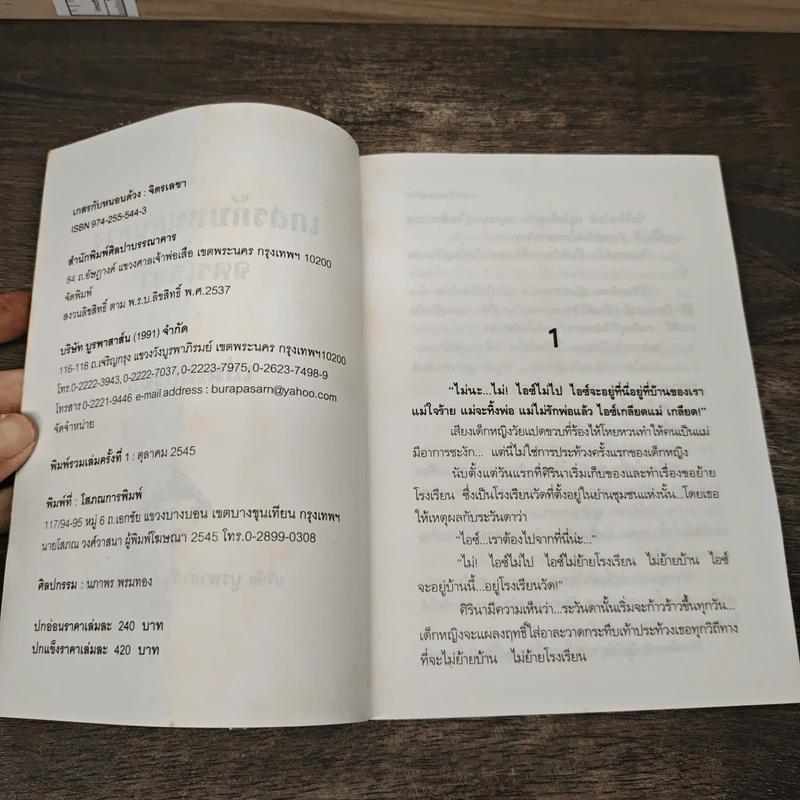 เกสรกับหนอนด้วง : จิตรเลขา
ISBN 974-255-544-3
สำนักพิมพ์ศิลปาบรรณาคาร
84 ถ.อัษฎางค์ แขวงศาลเจ้าพ่อเสือ เขตพระนคร กรุงเทพฯ 10200
จัดพิมพ์
สงวนลิขสิทธิ์ ตาม พ.ร.บ.ลิขสิทธิ์ พ.ศ.2537
บริษัท บูรพาสาส์น (1991) จำกัด
116-118 ถ.เจริญกรุง แขวงวังบูรพาภิรมย์ เขตพระนคร กรุงเทพฯ10200
โทร.0-2222-3943, 0-2222-7037, 0-2223-7975, 0-2623-7498-9
โทรสาร 0-2221-9446 e-mail address : burapasarn@yahoo.com
จัดจำหน่าย
พิมพ์รวมเล่มครั้งที่ 1 : ตุลาคม 2545
พิมพ์ที่ : โสภณการพิมพ์
117/94-95 หมู่ 6 ถ.เอกชัย แขวงบางบอน เขตบางขุนเทียน กรุงเทพฯ
นายโสภณ วงศ์วาสนา ผู้พิมพ์โฆษณา 2545 โทร.0-2899-0308
ศิลปกรรม : นภาพร พรมทอง
ปกอ่อนราคาเล่มละ 240 บาท
ปกแข็งราคาเล่มละ 420 บาท
1
"ไม่นะ...ไม่! ไอซ์ไม่ไป ไอซ์จะอยู่ที่นี่อยู่ที่บ้านของเรา
แม่ใจร้าย แม่จะทิ้งพ่อ แม่ไม่รักพ่อแล้ว ไอซ์เกลียดแม่ เกลียด!"
เสียงเด็กหญิงวัยแปดขวบที่ร้องไห้โหยหวนทำให้คนเป็นแม่
มีอาการชะงัก... แต่นี่ไม่ใช่การประท้วงครั้งแรกของเด็กหญิง
นับตั้งแต่วันแรกที่ศิรินาเริ่มเก็บของและทำเรื่องขอย้าย
โรงเรียน ซึ่งเป็นโรงเรียนวัดที่ตั้งอยู่ในย่านชุมชนแห่งนั้น...โดยเธอ
ให้เหตุผลกับระวันดาว่า
"ไอซ์...เราต้องไปจากที่นี่น่ะ..."
"ไม่! ไอซ์ไม่ไป ไอซ์ไม่ย้ายโรงเรียน ไม่ย้ายบ้าน ไอซ์
จะอยู่บ้านนี้...อยู่โรงเรียนวัด!"
ศิรินามีความเห็นว่า...ระวันดานั้นเริ่มจะก้าวร้าวขึ้นทุกวัน...
เด็กหญิงจะแผลงฤทธิ์ใส่อาละวาดกระทืบเท้าประท้วงเธอทุกวิถีทาง
ที่จะไม่ย้ายบ้าน ไม่ย้ายโรงเรียน